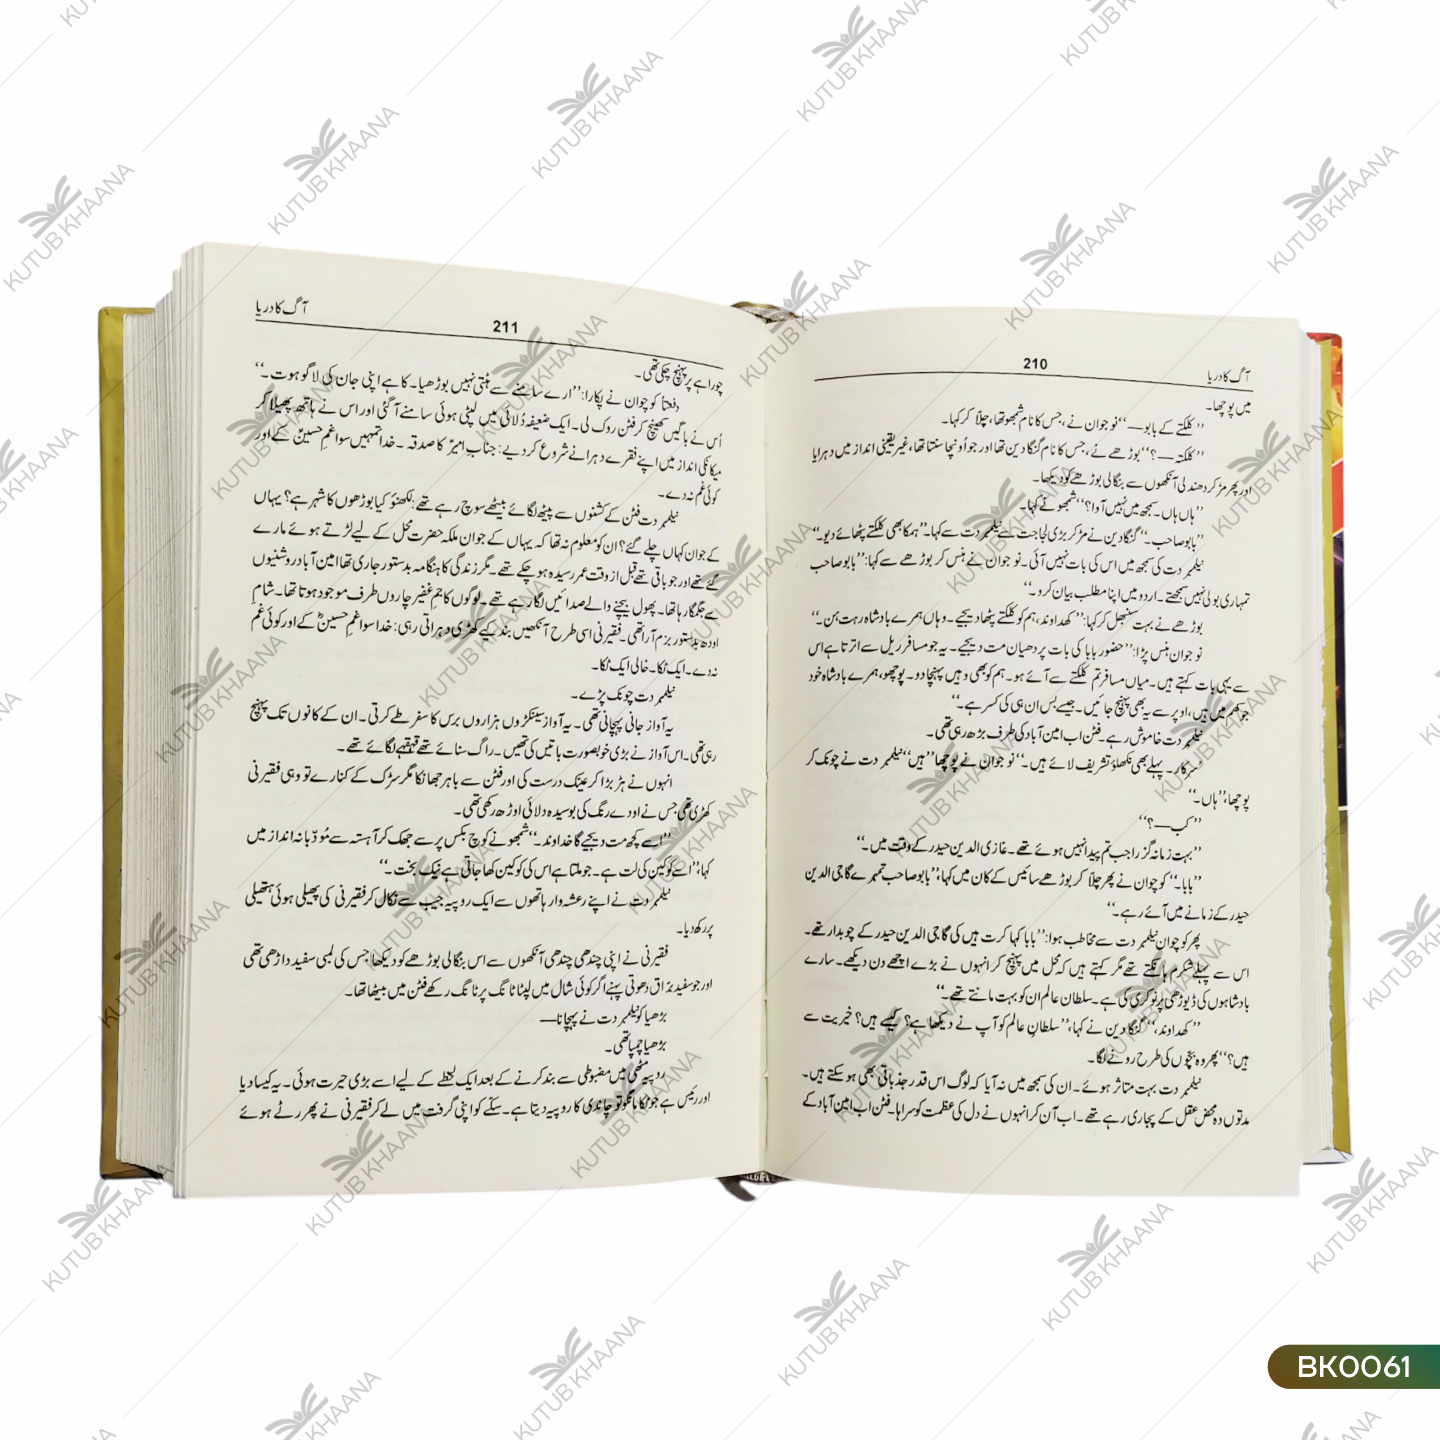 210
آگ کا دریا
میں پوچھا۔
’’کلکتے کے بابو—‘‘ نوجوان نے، جس کا نام شمبھو تھا، چلّا کر کہا۔
’’کلکتہ—؟‘‘ بوڑھے نے، جس کا نام گنگا دین تھا اور جو اُونچا سنتا تھا، غیر یقینی انداز میں دہرایا
اور پھر مڑ کر دھندلی آنکھوں سے بنگالی بوڑھے کو دیکھا۔
’’ہاں ہاں۔ سمجھ میں نہیں آوا؟‘‘ شمبھو نے کہا۔
’’بابو صاحب۔‘‘ گنگا دین نے مڑ کر بڑی لجاجت سے نیلمبر دت سے کہا۔ ’’ہمکا بھی کلکتے پٹھائے دیو۔‘‘
نیلمبر دت کی سمجھ میں اس کی بات نہیں آئی۔ نوجوان نے ہنس کر بوڑھے سے کہا: ’’بابو صاحب
تمہاری بولی نہیں سمجھتے۔ اردو میں اپنا مطلب بیان کرو۔‘‘
بوڑھے نے بہت سنبھل کر کہا: ’’کھداوند، ہم کو کلکتے پٹھا دیجیے۔ وہاں ہمرے بادشاہ رہت ہن۔‘‘
نوجوان ہنس پڑا: ’’حضور بابا کی بات پر دھیان مت دیجیے۔ یہ جو مسافر ریل سے اترتا ہے اس
سے یہی بات کہتے ہیں۔ میاں مسافر تم کلکتے سے آئے ہو۔ ہم کو بھی وہیں پہنچا دو۔ پوچھو، ہمرے بادشاہ خود
جو کھم میں ہیں، اوپر سے یہ بھی پہنچ جائیں۔ جیسے بس ان ہی کی کسر ہے۔‘‘
نیلمبر دت خاموش رہے۔ فٹن اب امین آباد کی طرف بڑھ رہی تھی۔
’’سرکار۔ پہلے بھی نکھلؤ تشریف لائے ہیں۔‘‘ نوجوان نے پوچھا ’’ہیں‘‘ نیلمبر دت نے چونک کر
پوچھا، ’’ہاں۔‘‘
’’کب—؟‘‘
’’بہت زمانہ گزرا جب تم پیدا نہیں ہوئے تھے۔ غازی الدین حیدر کے وقت میں۔‘‘
’’بابا۔‘‘ کوچوان نے پھر چلّا کر بوڑھے سائیس کے کان میں کہا، ’’بابو صاحب تمہرے گاجی الدین
حیدر کے زمانے میں آئے رہے۔‘‘
پھر کوچوان نیلمبر دت سے مخاطب ہوا: ’’بابا کہا کرت ہیں کی گاجی الدین حیدر کے چوبدار تھے۔
اس سے پہلے شکرم ہانکتے تھے مگر کہتے ہیں کہ محل میں پہنچ کر انہوں نے بڑے اچھے دن دیکھے۔ سارے
بادشاہوں کی ڈیوڑھی پر نوکری کی ہے۔ سلطان عالم ان کو بہت مانتے تھے۔‘‘
’’کھداوند،‘‘ گنگا دین نے کہا، ’’سلطانِ عالم کو آپ نے دیکھا ہے؟ کیسے ہیں؟ خیریت سے
ہیں؟‘‘ پھر وہ بچّوں کی طرح رونے لگا۔
نیلمبر دت بہت متاثر ہوئے۔ ان کی سمجھ میں نہ آیا کہ لوگ اس قدر جذباتی بھی ہو سکتے ہیں۔
مدتوں وہ محض عقل کے پجاری رہے تھے۔ اب آن کر انہوں نے دل کی عظمت کو سراہا۔ فٹن اب امین آباد کے
211
آگ کا دریا
چوراہے پر پہنچ چکی تھی۔
دفعتاً کوچوان نے پکارا: ’’ارے سامنے سے ہٹتی نہیں بوڑھیا۔ کاہے اپنی جان کی لاگو ہوت۔‘‘
اُس نے باگیں کھینچ کر فٹن روک لی۔ ایک ضعیفہ دُلائی میں لپٹی ہوئی سامنے آ گئی اور اس نے ہاتھ پھیلا کر
میکانکی انداز میں اپنے فقرے دہرانے شروع کر دیے: جنابِ امیرؑ کا صدقہ۔ خدا تمہیں سوا غمِ حسینؑ کے اور
کوئی غم نہ دے۔
نیلمبر دت فٹن کے کشنوں سے پیٹھ لگائے بیٹھے سوچ رہے تھے: لکھنؤ کیا بوڑھوں کا شہر ہے؟ یہاں
کے جوان کہاں چلے گئے؟ ان کو معلوم نہ تھا کہ یہاں کے جوان ملکہ حضرت محل کے لیے لڑتے ہوئے مارے
گئے تھے اور جو باقی تھے قبل از وقت عمر رسیدہ ہو چکے تھے۔ مگر زندگی کا ہنگامہ بدستور جاری تھا امین آباد روشنیوں
سے جگمگا رہا تھا۔ پھول بیچنے والے صدائیں لگا رہے تھے۔ لوگوں کا جمِ غفیر چاروں طرف موجود ہوتا تھا۔ شامِ
اودھ بدستور بزم آرا تھی۔ فقیرنی اسی طرح آنکھیں بند کیے کھڑی دہراتی رہی: خدا سوا غمِ حسینؑ کے اور کوئی غم
نہ دے۔ ایک ٹکا۔ خالی ایک ٹکا۔
نیلمبر دت چونک پڑے۔
یہ آواز جانی پہچانی تھی۔ یہ آواز سینکڑوں ہزاروں برس کا سفر طے کرتی۔ ان کے کانوں تک پہنچ
رہی تھی۔ اس آواز نے بڑی خوبصورت باتیں کی تھیں۔ راگ سنائے تھے قہقہے لگائے تھے۔
انہوں نے ہڑبڑا کر عینک درست کی اور فٹن سے باہر جھانکا مگر سڑک کے کنارے تو وہی فقیرنی
کھڑی تھی جس نے اودے رنگ کی بوسیدہ دلائی اوڑھ رکھی تھی۔
’’اسے کچھ مت دیجیے گا خداوند۔‘‘ شمبھو نے کوچ بکس پر سے جھک کر آہستہ سے مُودّبانہ انداز میں
کہا، ’’اسے کوکین کی لت ہے۔ جو ملتا ہے اس کی کوکین کھا جاتی ہے نیک بخت۔‘‘
نیلمبر دت نے اپنے رعشہ وار ہاتھوں سے ایک روپیہ جیب سے نکال کر فقیرنی کی پھیلی ہوئی ہتھیلی
پر رکھ دیا۔
فقیرنی نے اپنی چندھی چندھی آنکھوں سے اس بنگالی بوڑھے کو دیکھا جس کی لمبی سفید داڑھی تھی
اور جو سفید برّاق دھوتی پہنے اگر کوئی شال میں لپٹا ٹانگ پر ٹانگ رکھے فٹن میں بیٹھا تھا۔
بڑھیا کو نیلمبر دت نے پہچانا—
بڑھیا چمپا تھی۔
روپیہ مٹھی میں مضبوطی سے بند کرنے کے بعد ایک لحظے کے لیے اسے بڑی حیرت ہوئی۔ یہ کیسا دیا
اور رئیس ہے جو ٹکا مانگو تو چاندی کا روپیہ دیتا ہے۔ سکّے کو اپنی گرفت میں لے کر فقیرنی نے پھر رٹے ہوئے
KUTUB KHAANA
BK0061